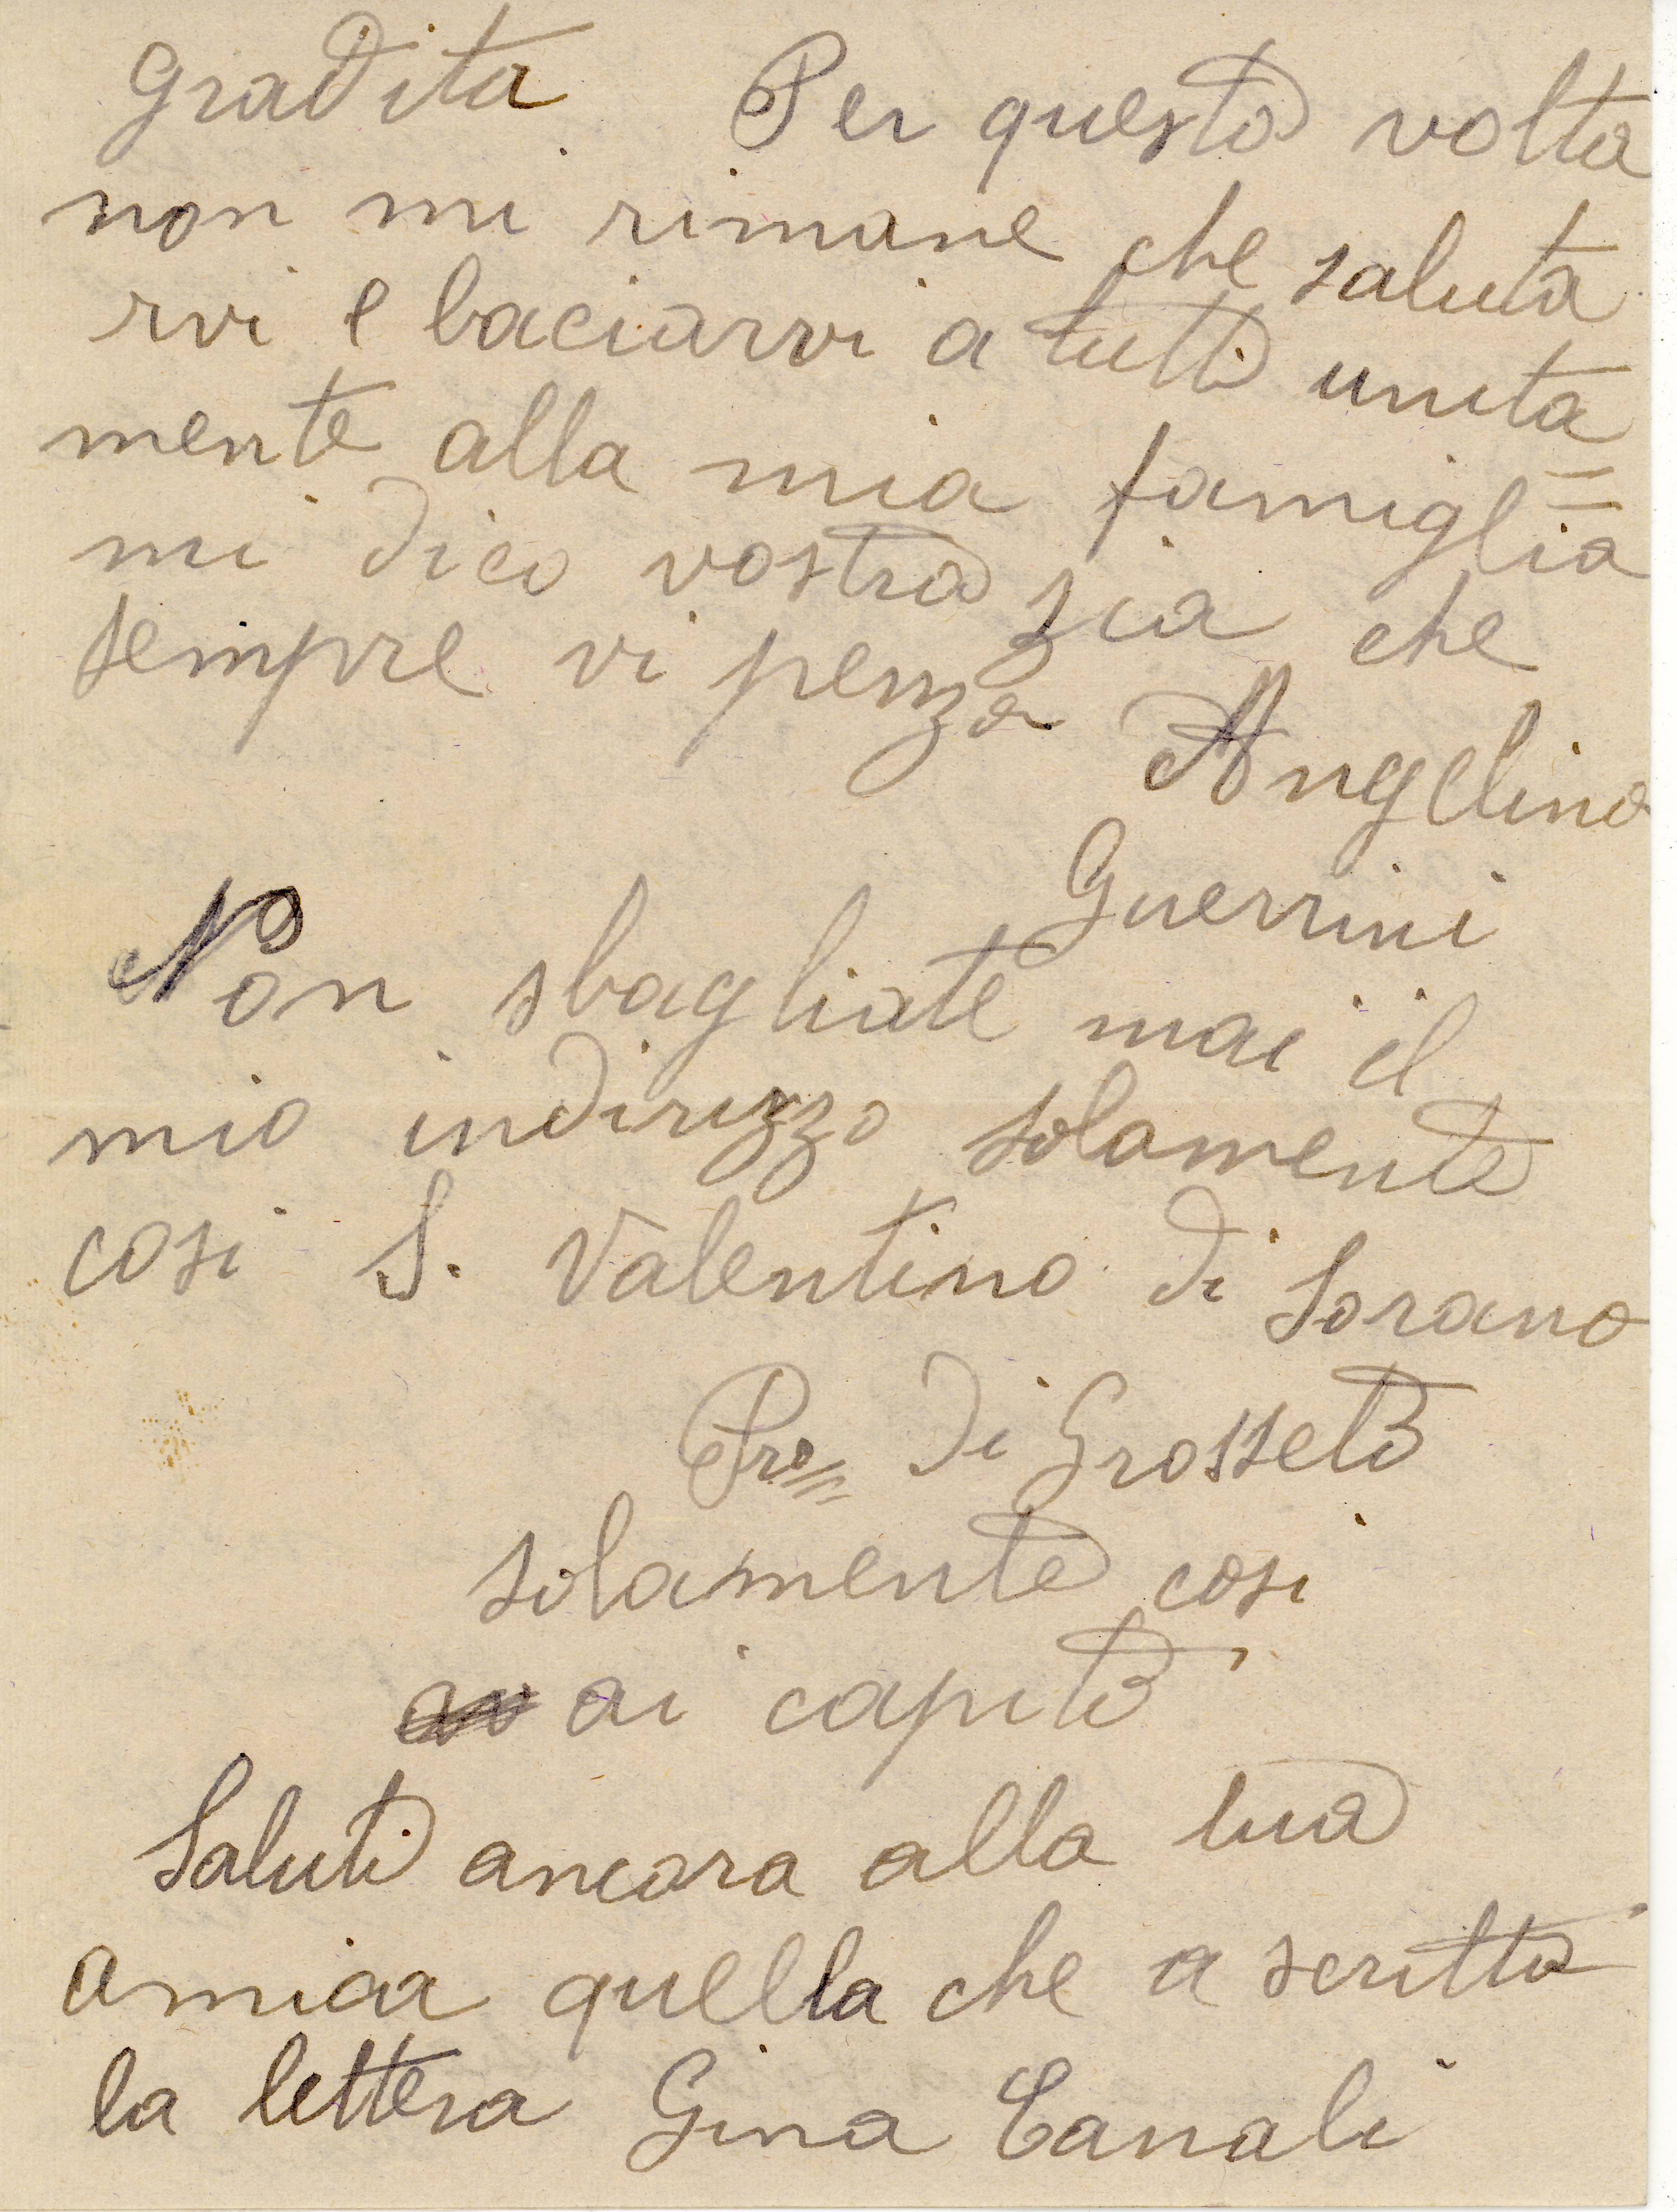 gradita Per questa volta
non mi rimane che saluta
rvi e baciarvi a tutti unita=
mente alla mia famiglia
mi dico vostra zia che
sempre vi penza Angelina
Guerrini
Non sbagliate mai il
mio indirizzo solamente
cosi S. Valentino di Sorano
Pro= di Grosseto
solamente cosi
ai capito
Saluti ancora alla tua
amica quella che a scritto
la lettera Gina Canali